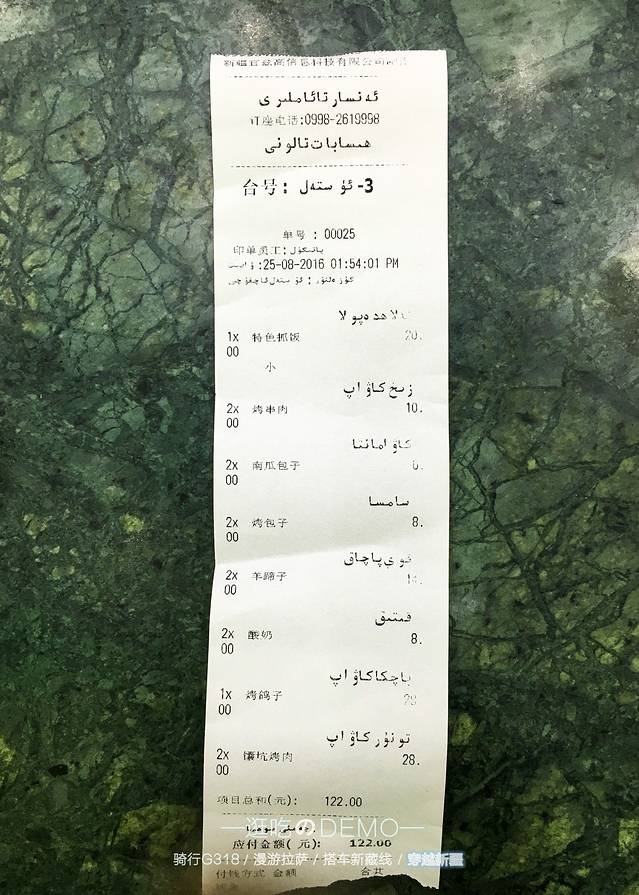 ئەنسار تائاملىرى
订座电话:0998-2619998
ھىسابات تالونى
台号: ئۈستەل -3
单号 : 00025
印单员工:
:25-08-2016 01:54:01 PM
1x 特色抓饭 20.
00
小
زىخ كاۋاپ
2x 烤串肉 10.
00
كاۋا مانتا
2x 南瓜包子 6.
00
سامسا
2x 烤包子 8.
00
قوي پاچاق
2x 羊蹄子
00
قېتىق
2x 酸奶 8.
00
باچكا كاۋاپ
1x 烤鸽子
00
تونۇر كاۋاپ
2x 馕坑烤肉 28.
00
项目总和(元): 122.00
逛吃のDEMO
应付金额(元): 122.00
骑行G318 / 漫游拉萨 / 搭车新藏线 / 穿越新疆
付钱方式 金额 合共